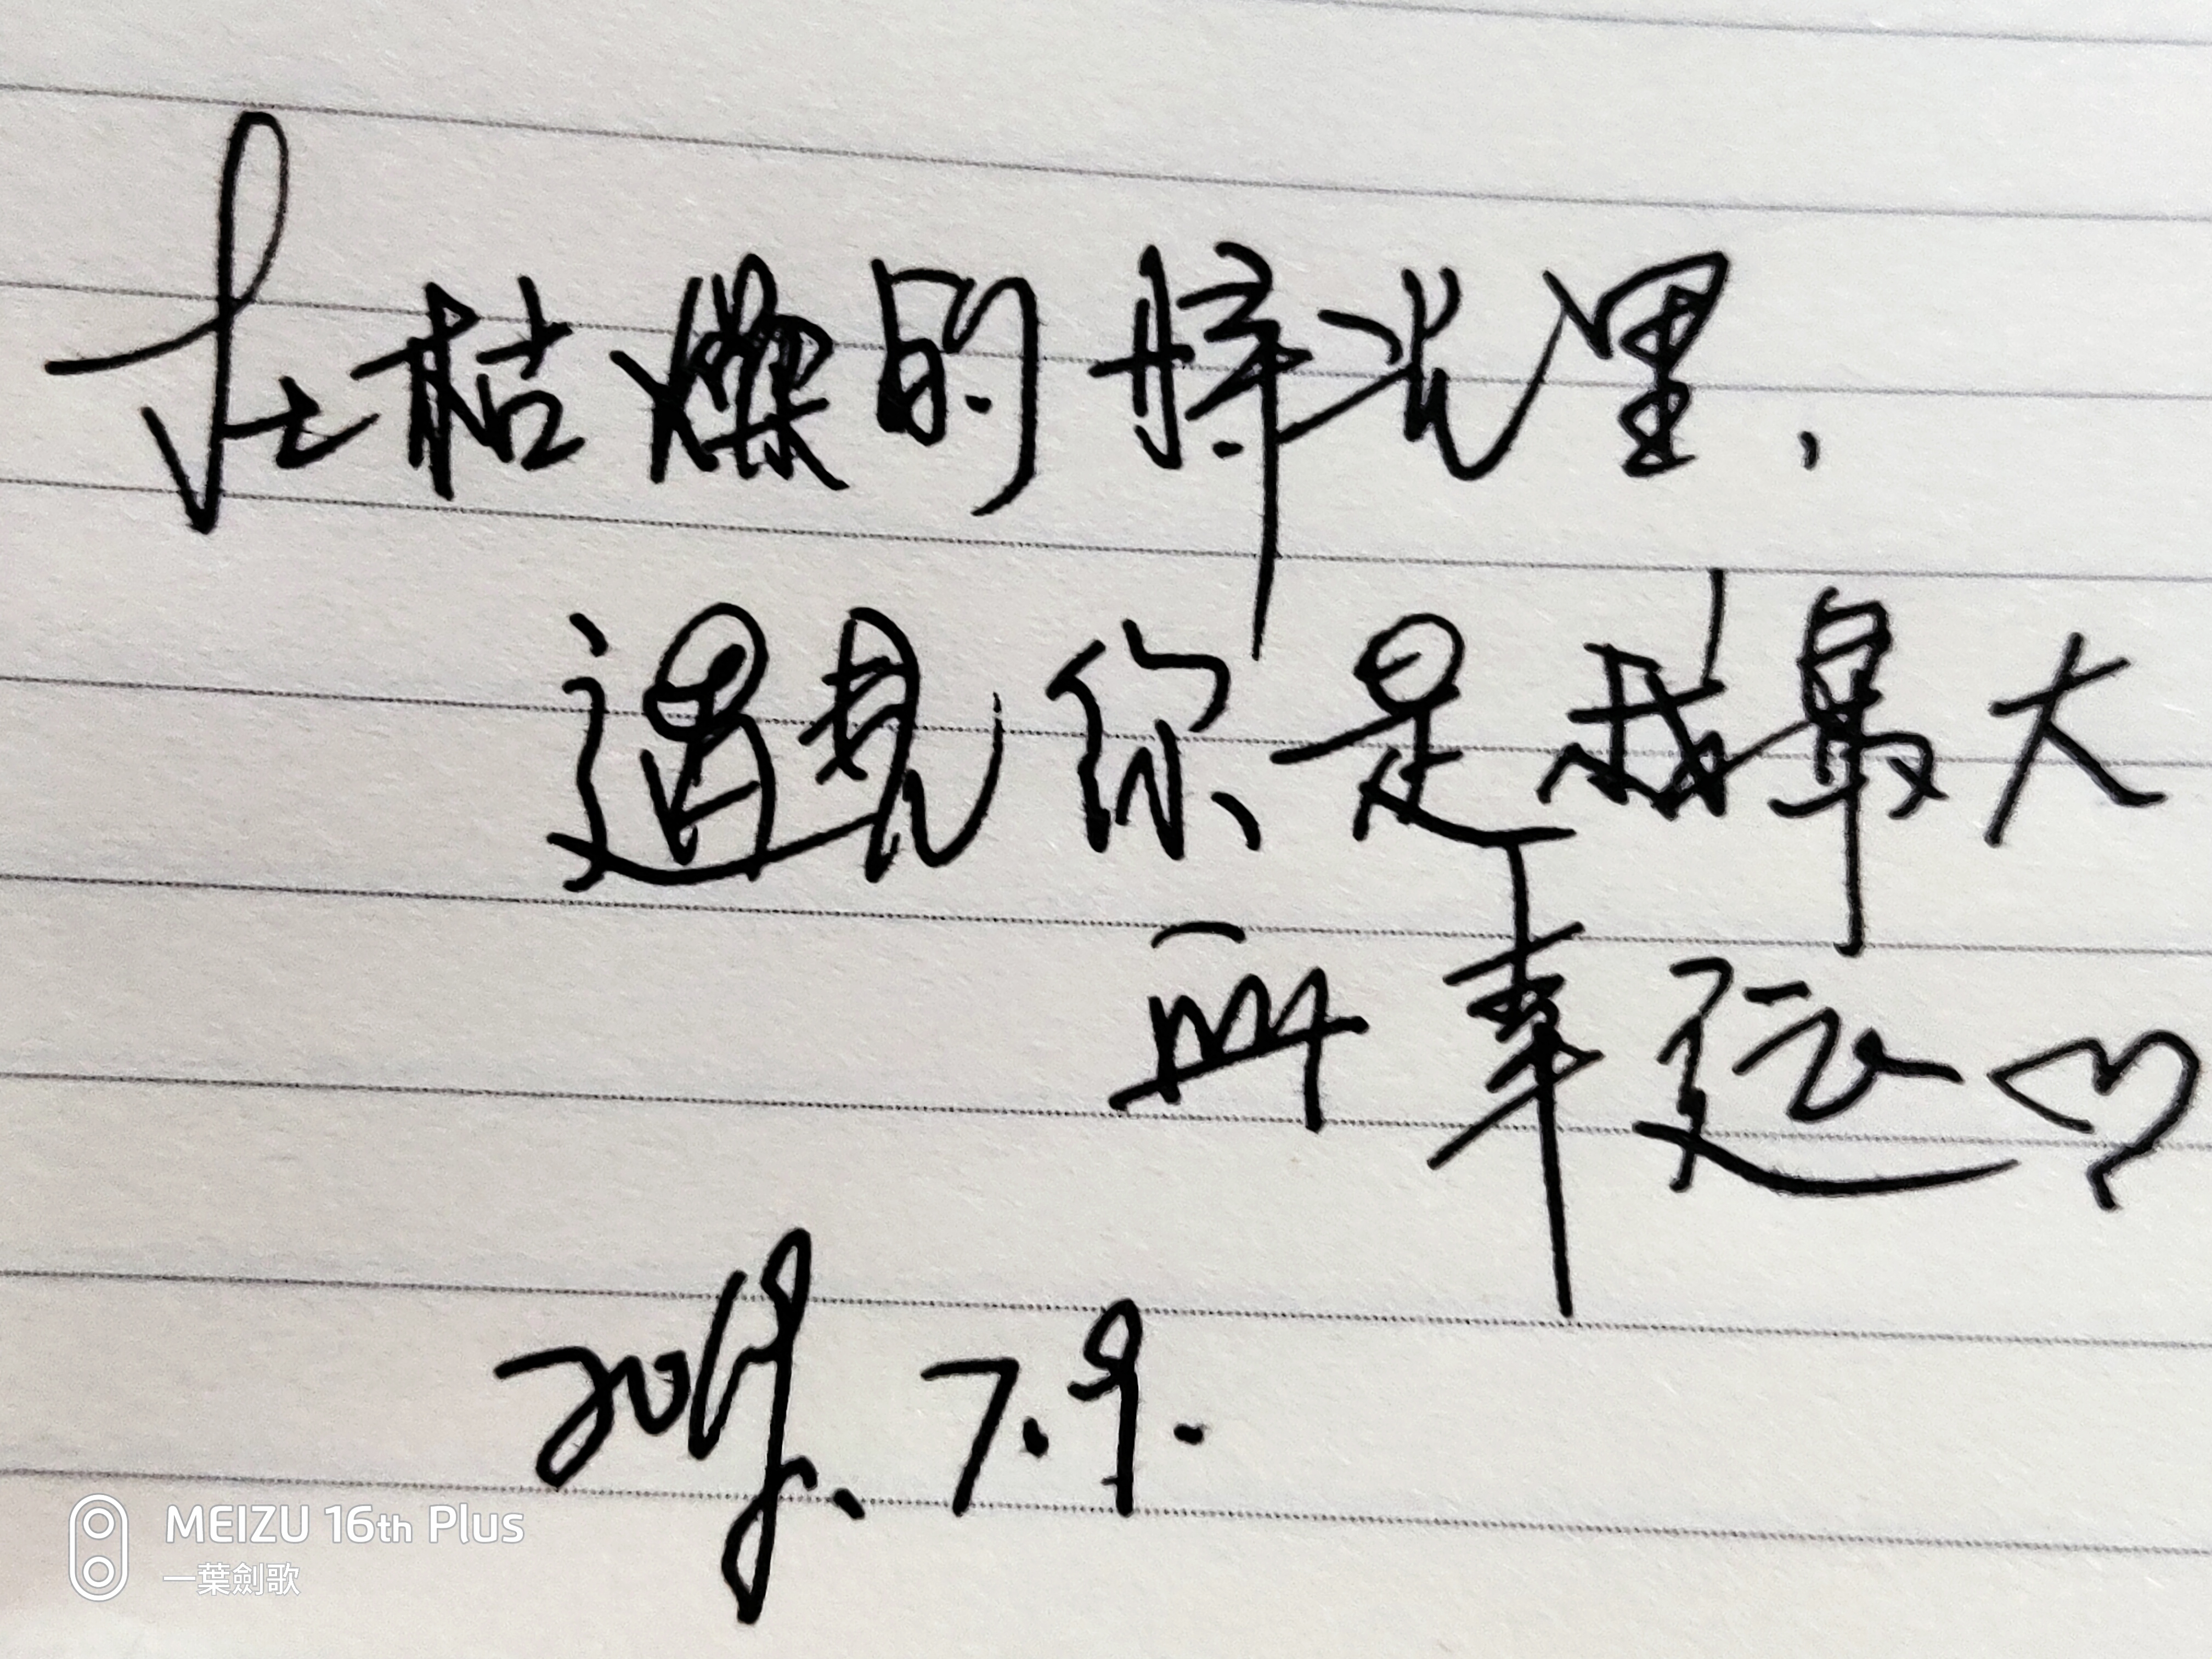 在枯燥的时光里,
遇见你是我最大
的幸运♡
2019.7.9.
MEIZU 16th Plus
一葉劍歌